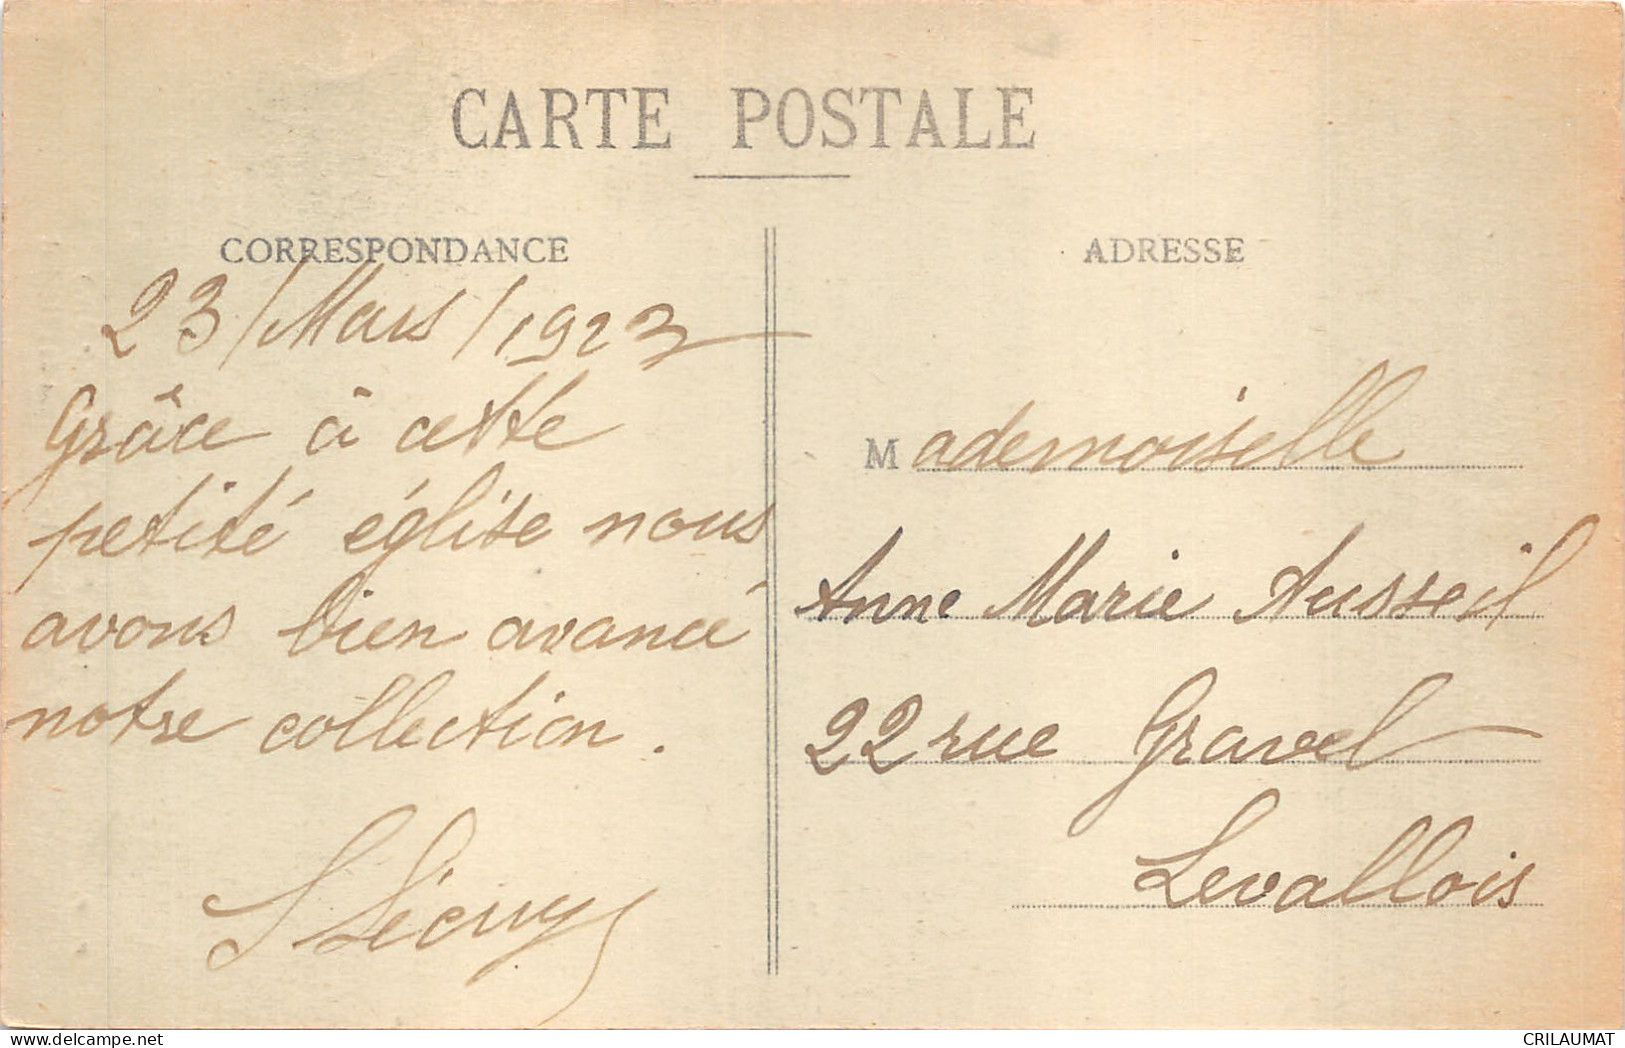 CARTE POSTALE
CORRESPONDANCE
23/Mars/1923
Grâce à cette
petité église nous
avons bien avancé
notre collection.
ADRESSE
Mademoiselle
Anne Marie Ausseil
22 rue Gravel
Levallois
www.delcampe.net
CRILAUMAT